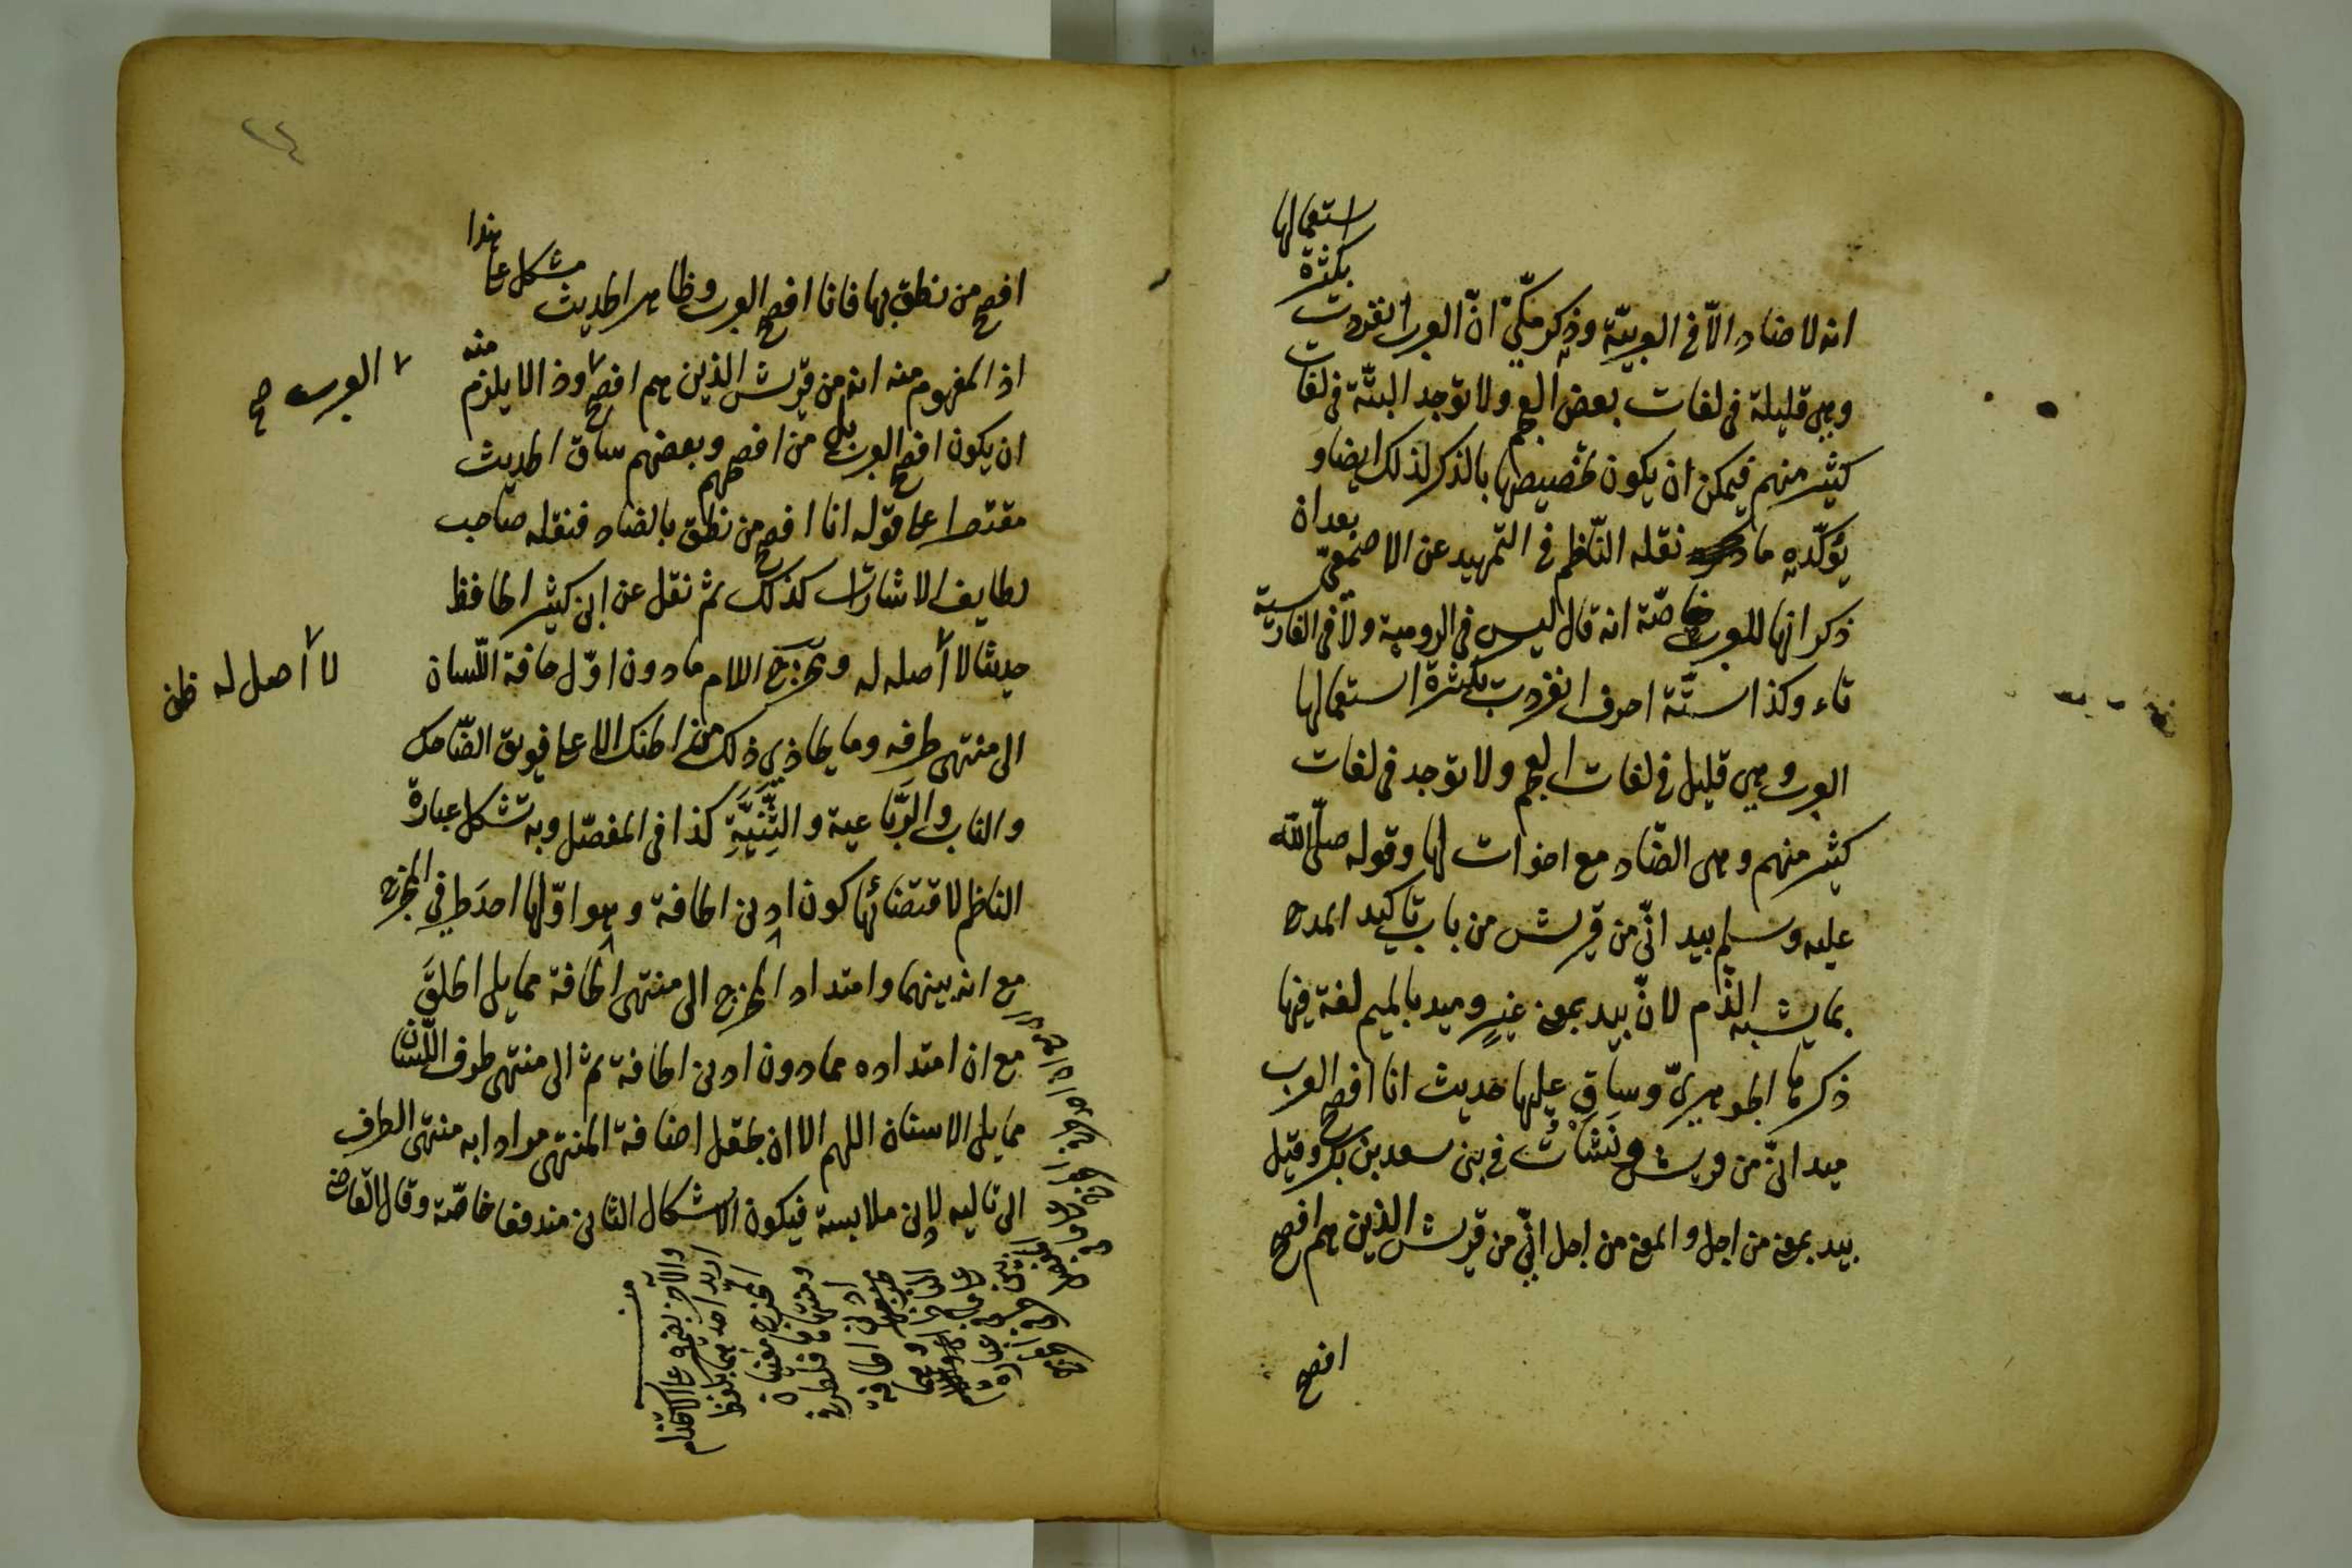 انه لا ضاد الّا في العربيّة وذكر مكّيّ انّ العرب انفردت بكثرة استعمالها
وهى قليلة فى لغات بعض العجم ولا توجد البتّة فى لغات
كثير منهم فيمكن ان يكون تخصيصها بالذكر لذلك ايضا و
يؤكّده ما نقله النّاظم في التمهيد عن الاصمعيّ بعد ان
ذكر انها للعرب خاصّة انه قال ليس فى الرومية ولا فى الفارسية
ثاء وكذا ستّة احرف انفردت بكثرة استعمالها
العرب وهى قليل في لغات العجم ولا توجد فى لغات
كثير منهم وهى الضّاد مع اخوات لها وقوله صلّى الله
عليه وسلم بيد انّي من قريش من باب تاكيد المدح
بما يشبه الذّم لانّ بيد بمعنى غير وميد بالميم لغة فيها
ذكرها الجوهريّ وساق عليها حديث انا افصح العرب
ميد انّي من قريش ونَشَأتُ في بنى سعد بن بكر وقيل
بيد بمعنى من اجل والمعنى من اجل انّي من قريش الذين هم افصح
افصح
افصح من نطق بها فانا افصح العرب وظاهر الحديث مشكل على هذا
اذ المفهوم منه انه من قريش الذين هم افصح وذا لا يلزم منه
العرب صح
ان يكون افصح العرب بل من افصحهم وبعضهم ساق الحديث
مقتصرا على قوله انا افصح من نطق بالضاد فنقله صاحب
لطايف الاشارات كذلك ثم نقل عن ابن كثير الحافظ
حديثا لا أصله له ومخرج اللام ما دون اوّل حافة اللّسان
لا أصل له ظن
الى منتهى طرفه وما يحاذي ذلك من الحنك الاعلى فويق الضّاحك
والناب والرَّباعية والثَّنِيَّةِ كذا فى المفصّل وبه تشكل عبارة
الناظم لاقتضائها كون ادنى الحافة وهو اوّلها احدَ طرفي المخرج
مع انه بينهما وامتداد المخرج الى منتهى الحافة مما يلى الحلقَ
مع ان امتداده مما دون ادنى الحافة ثم الى منتهى طرف اللّسان
مما يلى الاسنان اللهم الا ان يجعل اضافة المنتهى مرادا به منتهى الطرف
الى تاليه لادنى ملابسة فيكون الاشكال الثانى مندفعا خاصّة وقال القاضى
ادنى الحافة
ومنتهاها فلطرفى
المخرج
اريد احدهما بلفظ
والآخر بضميره على الاستخدام
منه